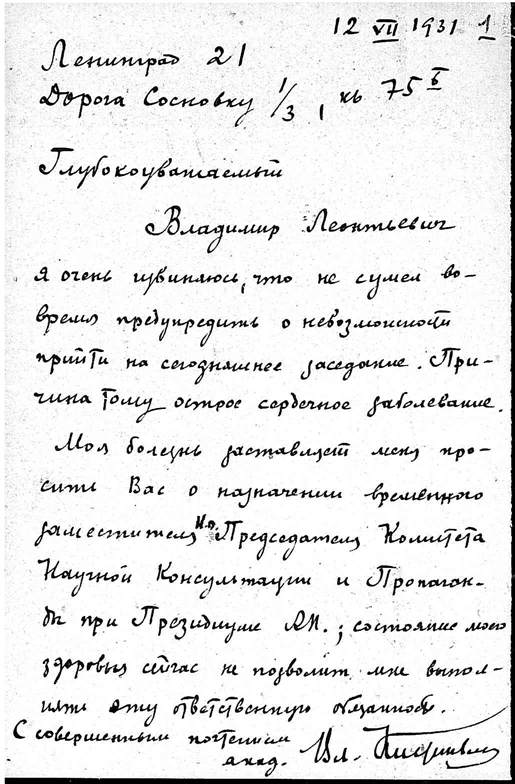 12 VII 1931 1
Ленинград 21
Дорога Сосновку 1/3, кв 75 б
Глубокоуважаемый
Владимир Леонтьевич
я очень извиняюсь, что не сумел во-
время предупредить о невозможности
прийти на сегодняшнее заседание. При-
чина тому острое сердечное заболевание.
Моя болезнь заставляет меня про-
сить Вас о назначении временного
заместителя И.о. Председателя Комитета
Научной Консультации и Пропаган-
ды при Президиуме АН.; состояние моего
здоровья сейчас не позволит мне выпол-
нять эту ответственную обязанность.
С совершенным почтением
акад. Вл.